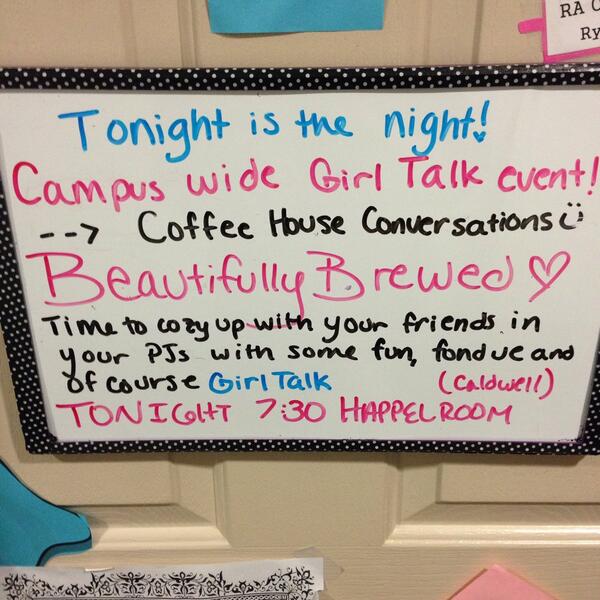 RA O
Ry
Tonight is the night!
Campus wide Girl Talk event!
--> Coffee House Conversations :)
Beautifully Brewed ♡
Time to cozy up with your friends in
your PJs with some fun, fondue and
of course Girl Talk (Caldwell)
TONIGHT 7:30 HAPPEL ROOM